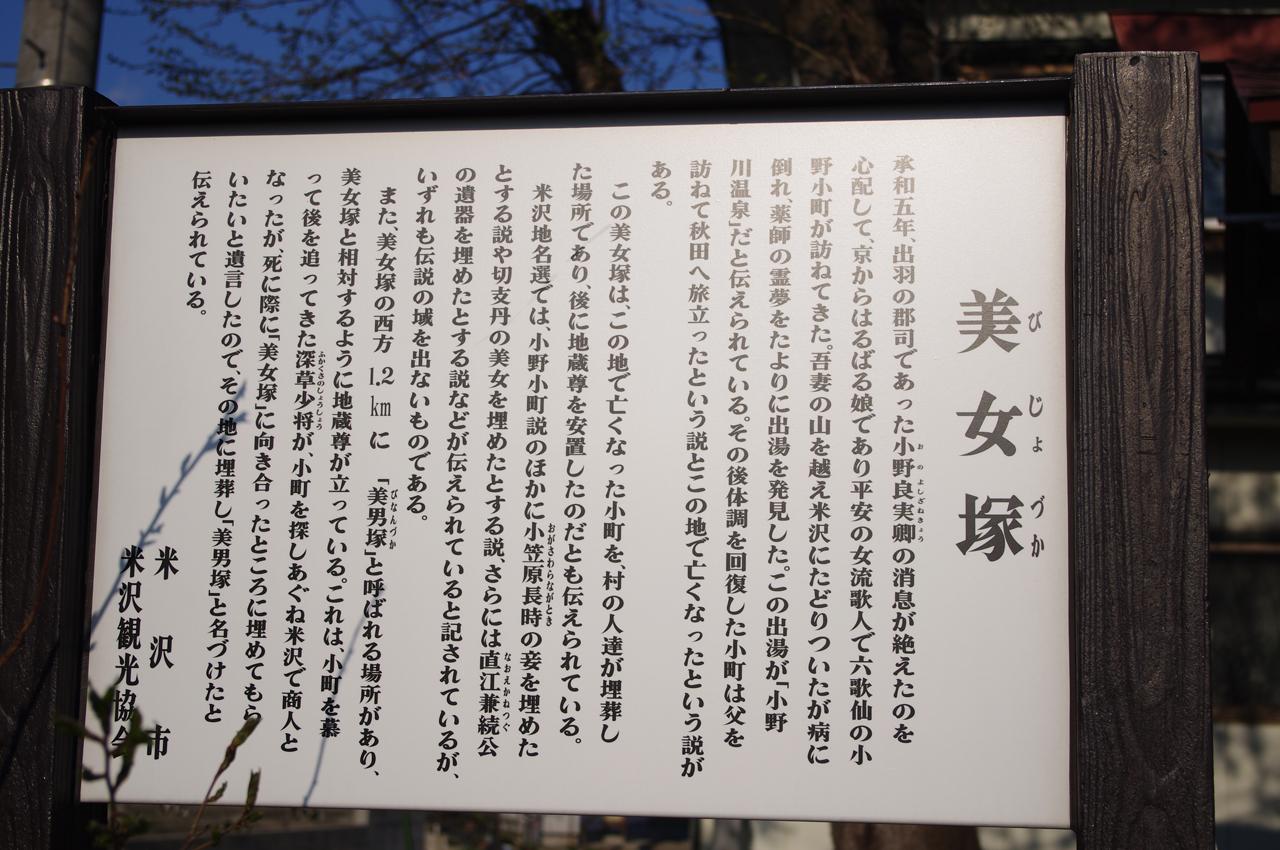 美女塚
びじょづか
承和五年、出羽の郡司であった小野良実卿の消息が絶えたのを
おのよしざねきょう
心配して、京からはるばる娘であり平安の女流歌人で六歌仙の小
野小町が訪ねてきた。吾妻の山を越え米沢にたどりついたが病に
倒れ、薬師の霊夢をたよりに出湯を発見した。この出湯が「小野
川温泉」だと伝えられている。その後体調を回復した小町は父を
訪ねて秋田へ旅立ったという説とこの地で亡くなったという説が
ある。
この美女塚は、この地で亡くなった小町を、村の人達が埋葬し
た場所であり、後に地蔵尊を安置したのだとも伝えられている。
米沢地名選では、小野小町説のほかに小笠原長時の妾を埋めた
おがさわらながとき
とする説や切支丹の美女を埋めたとする説、さらには直江兼続公
なおえかねつぐ
の遺器を埋めたとする説などが伝えられていると記されているが、
いずれも伝説の域を出ないものである。
また、美女塚の西方 1.2 km に 「美男塚」と呼ばれる場所があり、
びなんづか
美女塚と相対するように地蔵尊が立っている。これは、小町を慕
って後を追ってきた深草少将が、小町を探しあぐね米沢で商人と
ふかくさのしょうしょう
なったが、死に際に「美女塚」に向き合ったところに埋めてもら
いたいと遺言したので、その地に埋葬し「美男塚」と名づけたと
伝えられている。
米沢市
米沢観光協会